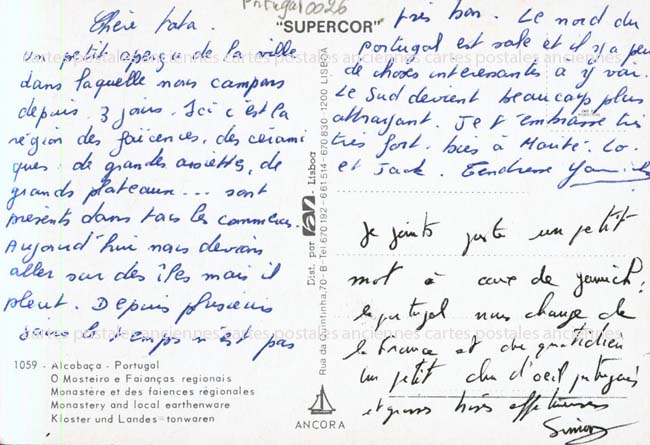 Portugal 0026
"SUPERCOR"
Chère Tata.
Un petit aperçu de la ville
dans laquelle nous campons
depuis 3 jours. Ici c'est la
région des faïences, des cérami
ques. de grandes assiettes, de
grands plateaux... sont
présents dans tous les commerces.
Aujourd'hui nous devions
aller sur des îles mais il
pleut. Depuis plusieurs
jours le temps n'est pas
très bon. Le nord du
Portugal est sale et il y a peu
de choses interessantes à y voir.
Le Sud devient beaucoup plus
attrayant. Je t'embrasse très
très fort. bises à
et Jack. Tendresse Yannick
Je joints juste un petit
mot à ceux de yannick:
le portugal nous change de
la France et du quotidien
un petit clin d'oeil portugais
et grosses bises affectueuses
Simon
1059 - Alcobaça - Portugal
O Mosteiro e Faianças regionais
Monastère et des faiences régionales
Monastery and local earthenware
Kloster und Landes-tonwaren
Dist. por - Lisbor
70-B - Tel. 670192 - 661514 - 670830 - 1200 LISBOA
ANCORA
cartes postales anciennes cartes postales anciennes cartes postales anciennes
cartes postales anciennes cartes postales anciennes cartes postales anciennes